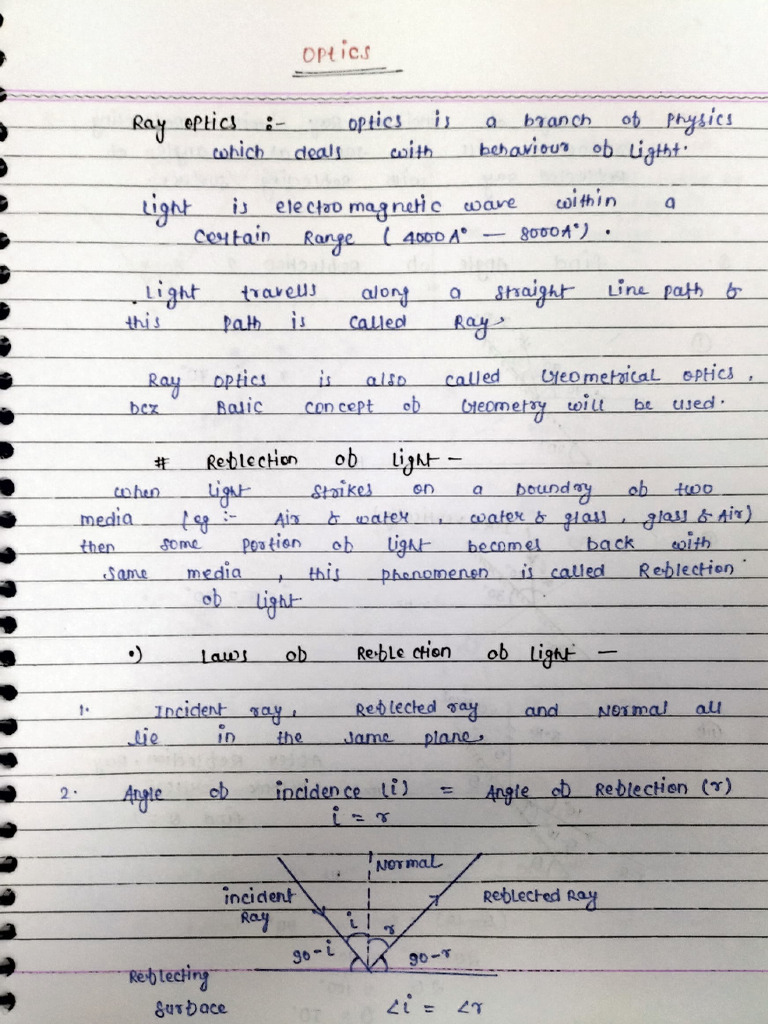 Optics
Ray optics :- optics is a branch of Physics
which deals with behaviour of Light.
Light is electromagnetic wave within a
Certain Range ( 4000A° — 8000A° ) .
Light travells along a straight Line path &
this path is called Ray.
Ray optics is also called Geometrical optics,
bcz Basic concept of Geometry will be used.
# Reflection of light –
when light strikes on a boundry of two
media (eg :- Air & water , water & glass , glass & Air)
then some portion of light becomes back with
same media , this phenomenon is called Reflection
of light
•) Laws of Reflection of light –
1. Incident ray, Reflected ray and Normal all
lie in the same plane.
2. Angle of incidence (i) = Angle of Reflection (r)
i = r
Normal
incident Reflected Ray
Ray
i r
90-i 90-r
Reflecting
surface ∠i = ∠r